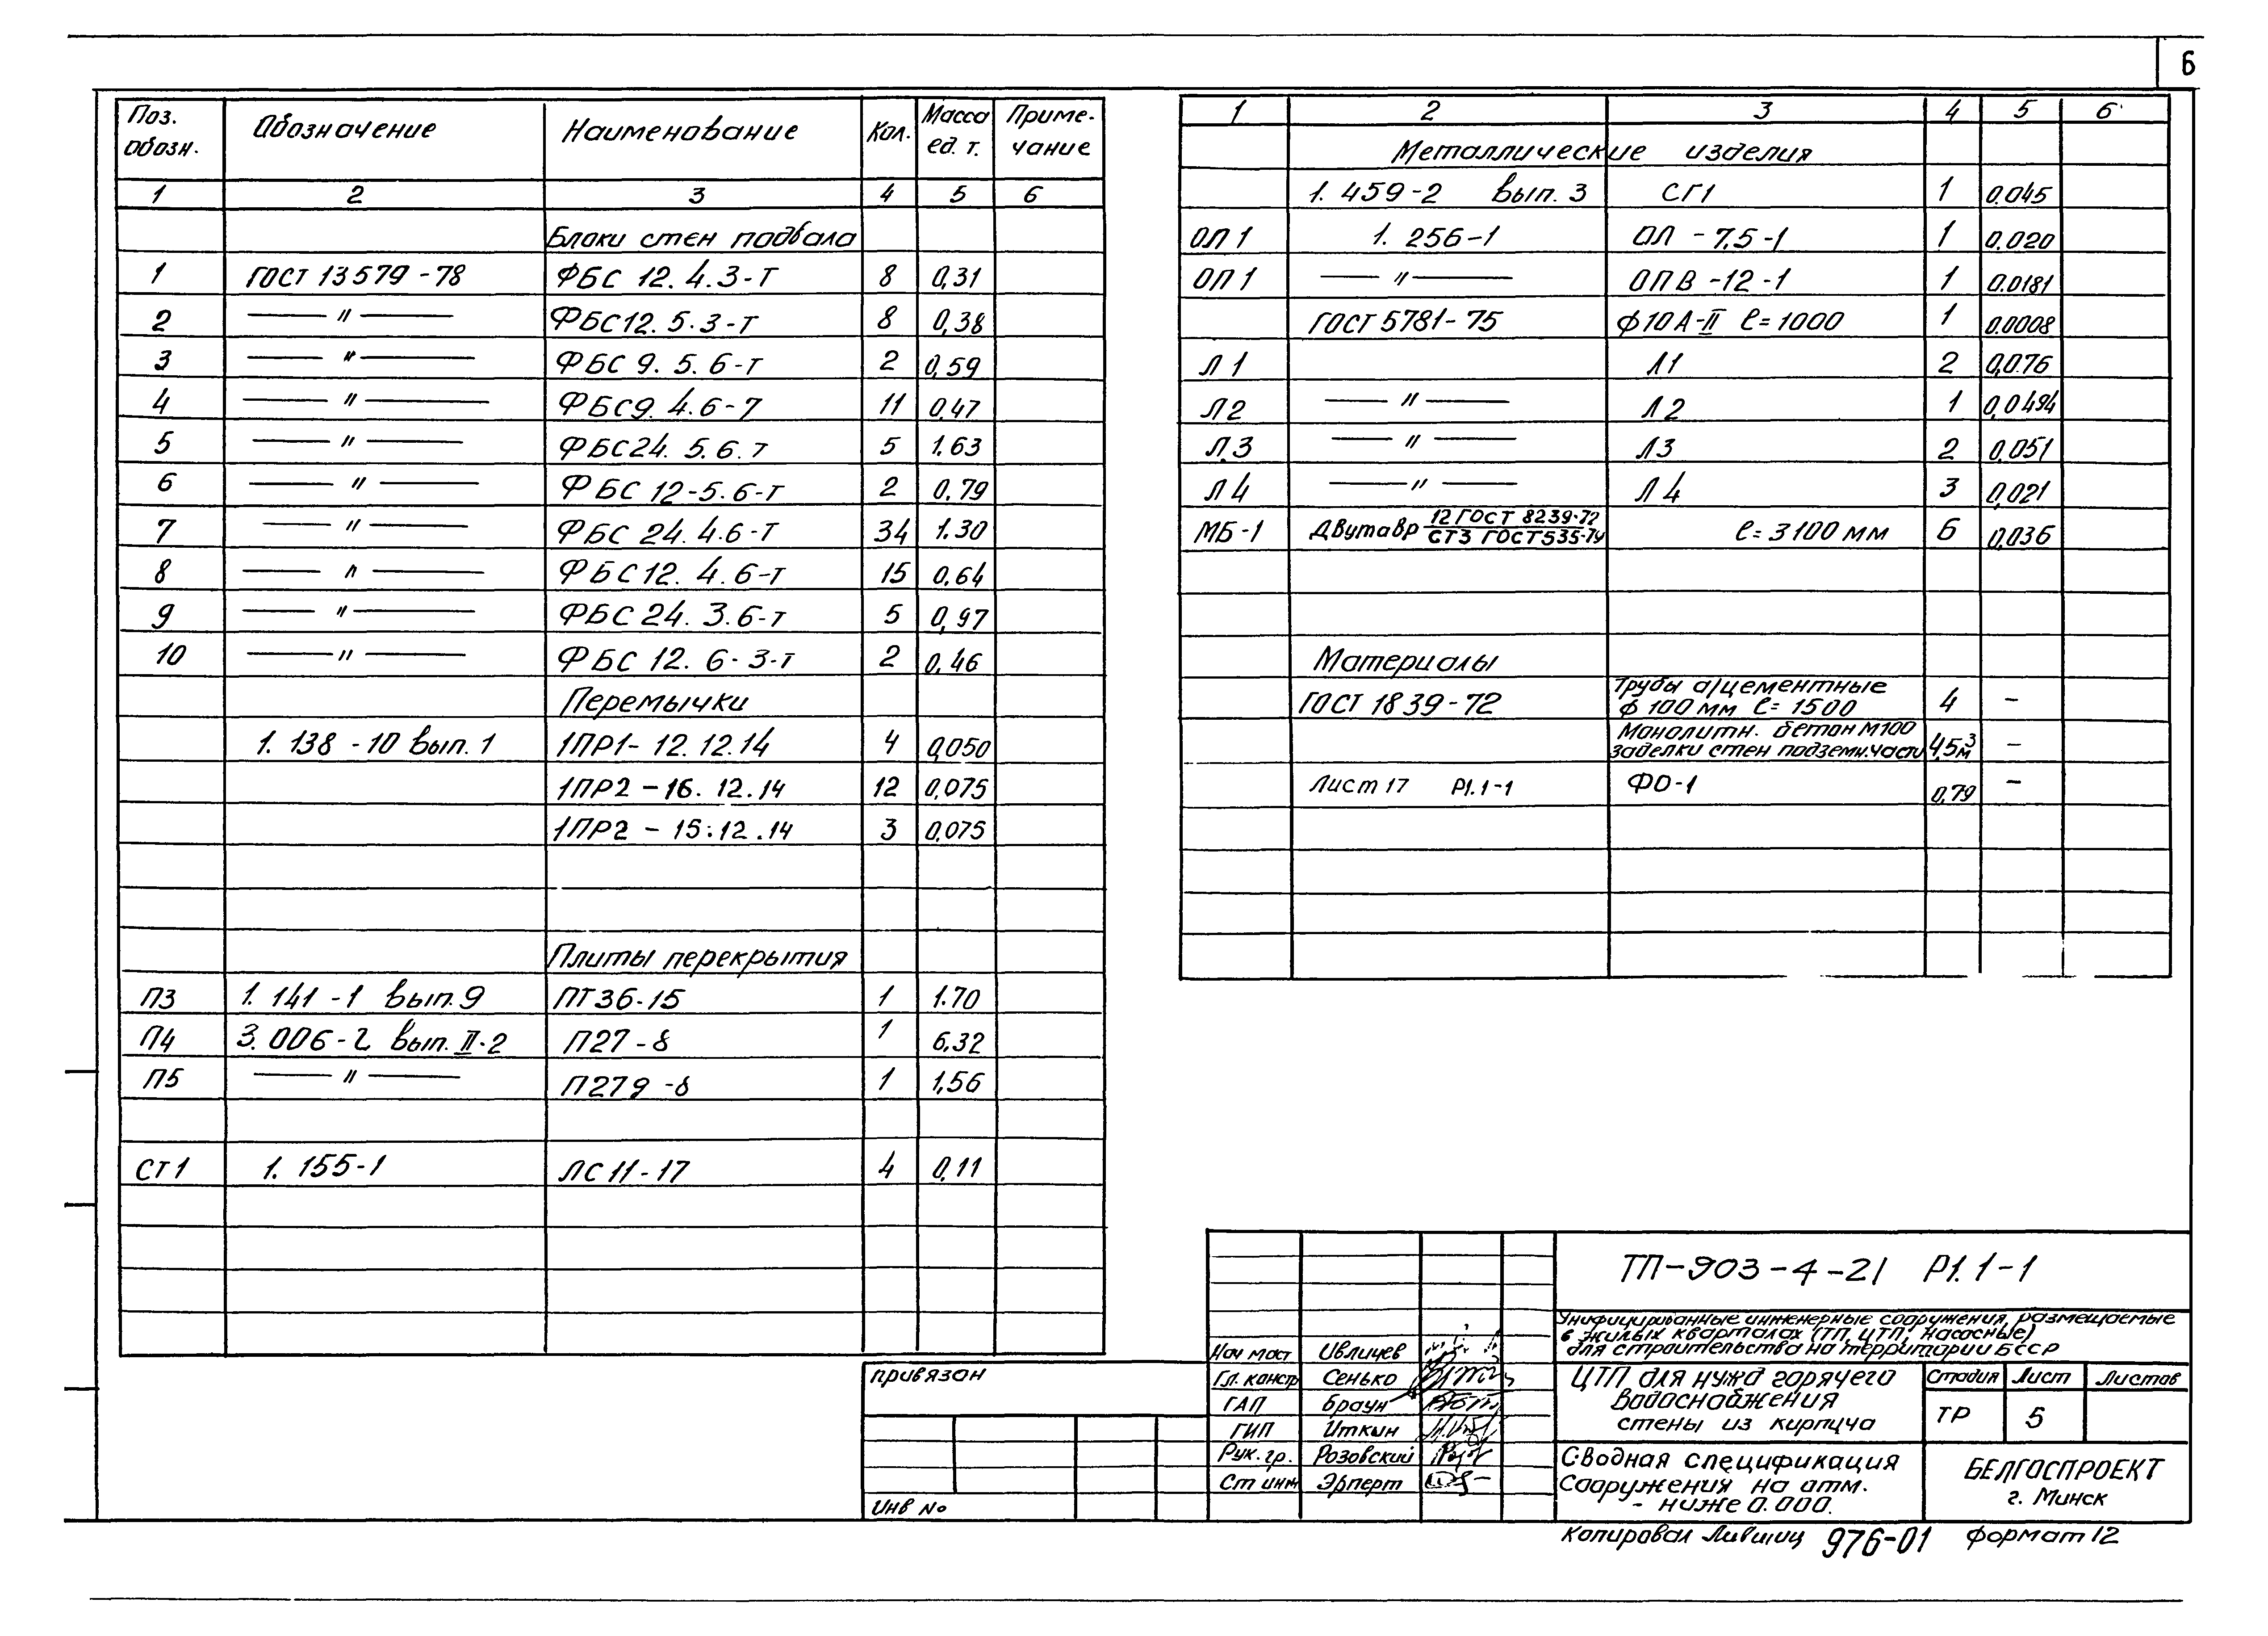 6
Поз. обозн. Обозначение Наименование Кол. Масса ед. т. Приме-чание
1 2 3 4 5 6
Блоки стен подвала
1 ГОСТ 13579-78 ФБС 12.4.3-т 8 0,31
2 — " — ФБС12.5.3-т 8 0,38
3 — " — ФБС 9.5.6-т 2 0,59
4 — " — ФБС9.4.6-7 11 0,47
5 — " — ФБС24.5.6.т 5 1.63
6 — " — ФБС 12-5.6-т 2 0,79
7 — " — ФБС 24.4.6-т 34 1.30
8 — " — ФБС12.4.6-т 15 0,64
9 — " — ФБС 24.3.6-т 5 0,97
10 — " — ФБС 12.6-3-т 2 0,46
Перемычки
1.138-10 вып.1 1ПР1-12.12.14 4 0,050
1ПР2-16.12.14 12 0,075
1ПР2-15.12.14 3 0,075
Плиты перекрытия
П3 1.141-1 вып.9 ПТ36-15 1 1.70
П4 3.006-2 вып.II-2 П27-8 1 6,32
П5 — " — П27д-8 1 1,56
СТ1 1.155-1 ЛС11-17 4 0,11
1 2 3 4 5 6
Металлические изделия
1.459-2 вып.3 СГ1 1 0.045
ОЛ1 1.256-1 ОЛ-7,5-1 1 0.020
ОП1 — " — ОПВ-12-1 1 0.0181
ГОСТ 5781-75 ф10А-II ℓ=1000 1 0.0008
Л1 Л1 2 0,076
Л2 — " — Л2 1 0,0494
Л3 — " — Л3 2 0,051
Л4 — " — Л4 3 0,021
МБ-1 Двутавр 12 ГОСТ 8239-72 / СТ3 ГОСТ535-79 ℓ=3100мм 6 0,036
Материалы
ГОСТ 1839-72 Трубы а/цементные ф 100мм ℓ=1500 4 -
Монолитн. бетон М100 заделки стен подземн.части 4,5м³ -
Лист 17 Р1.1-1 ФО-1 0,79 -
ТП-903-4-21 Р1.1-1
Унифицированные инженерные сооружения, размещаемые
в жилых кварталах (ТП, ЦТП, насосные)
для строительства на территории БССР
Нач маст Ивличев
Гл. констр Сенько
ГАП Браун
ГИП Иткин
Рук.гр. Розовский
Ст инж Эрперт
ЦТП для нужд горячего
водоснабжения
стены из кирпича
Стадия Лист Листов
ТР 5
Сводная спецификация
Сооружения на отм.
- ниже 0.000.
БЕЛГОСПРОЕКТ
г. Минск
привязан
Инв №
Копировал Лившиц 976-01 Формат 12